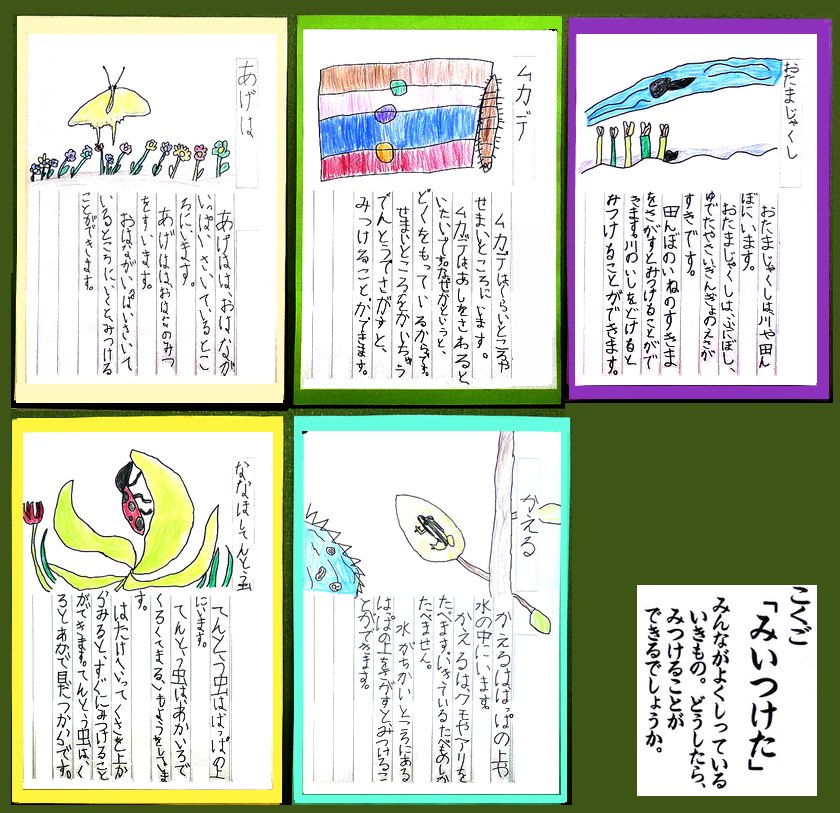 おたまじゃくし
おたまじゃくしは、川や田ん
ぼにいます。
おたまじゃくしは、にぼし、
ゆでたやさい、きんぎょのえさが
すきです。
田んぼのいねのすきま
をさがすとみつけることがで
きます。川のいしをどけると
みつけることができます。
ムカデ
ムカデは、くらいところや
せまいところにいます。
ムカデはあしをさわると
いたいです。なぜかというと、
どくをもっているからです。
せまいところをかいちゅう
でんとうでさがすと、
みつけることができます。
あげは
あげはは、おはなが
いっぱいさいているとこ
ろにいます。
あげはは、おはなのみつ
をすいます。
おはながいっぱいさいて
いるところにいくとみつける
ことができます。
こくご
「みいつけた」
みんながよくしっている
いきもの。どうしたら、
みつけることが
できるでしょうか。
かえる
かえるははっぱの上や
水の中にいます。
かえるは、クモやアリを
たべます。いきているたべものしか
たべません。
水がちかいところにある
はっぱの上をさがすと、みつけるこ
とができます。
ななほしてんとう虫
てんとう虫ははっぱの上
にいます。
てんとう虫は、あかいろで
くろくてまるいもようをしていま
す。
はたけへいってくさを上か
らみると、すぐにみつけること
ができます。てんとう虫は、く
ろとあかで目だつからです。